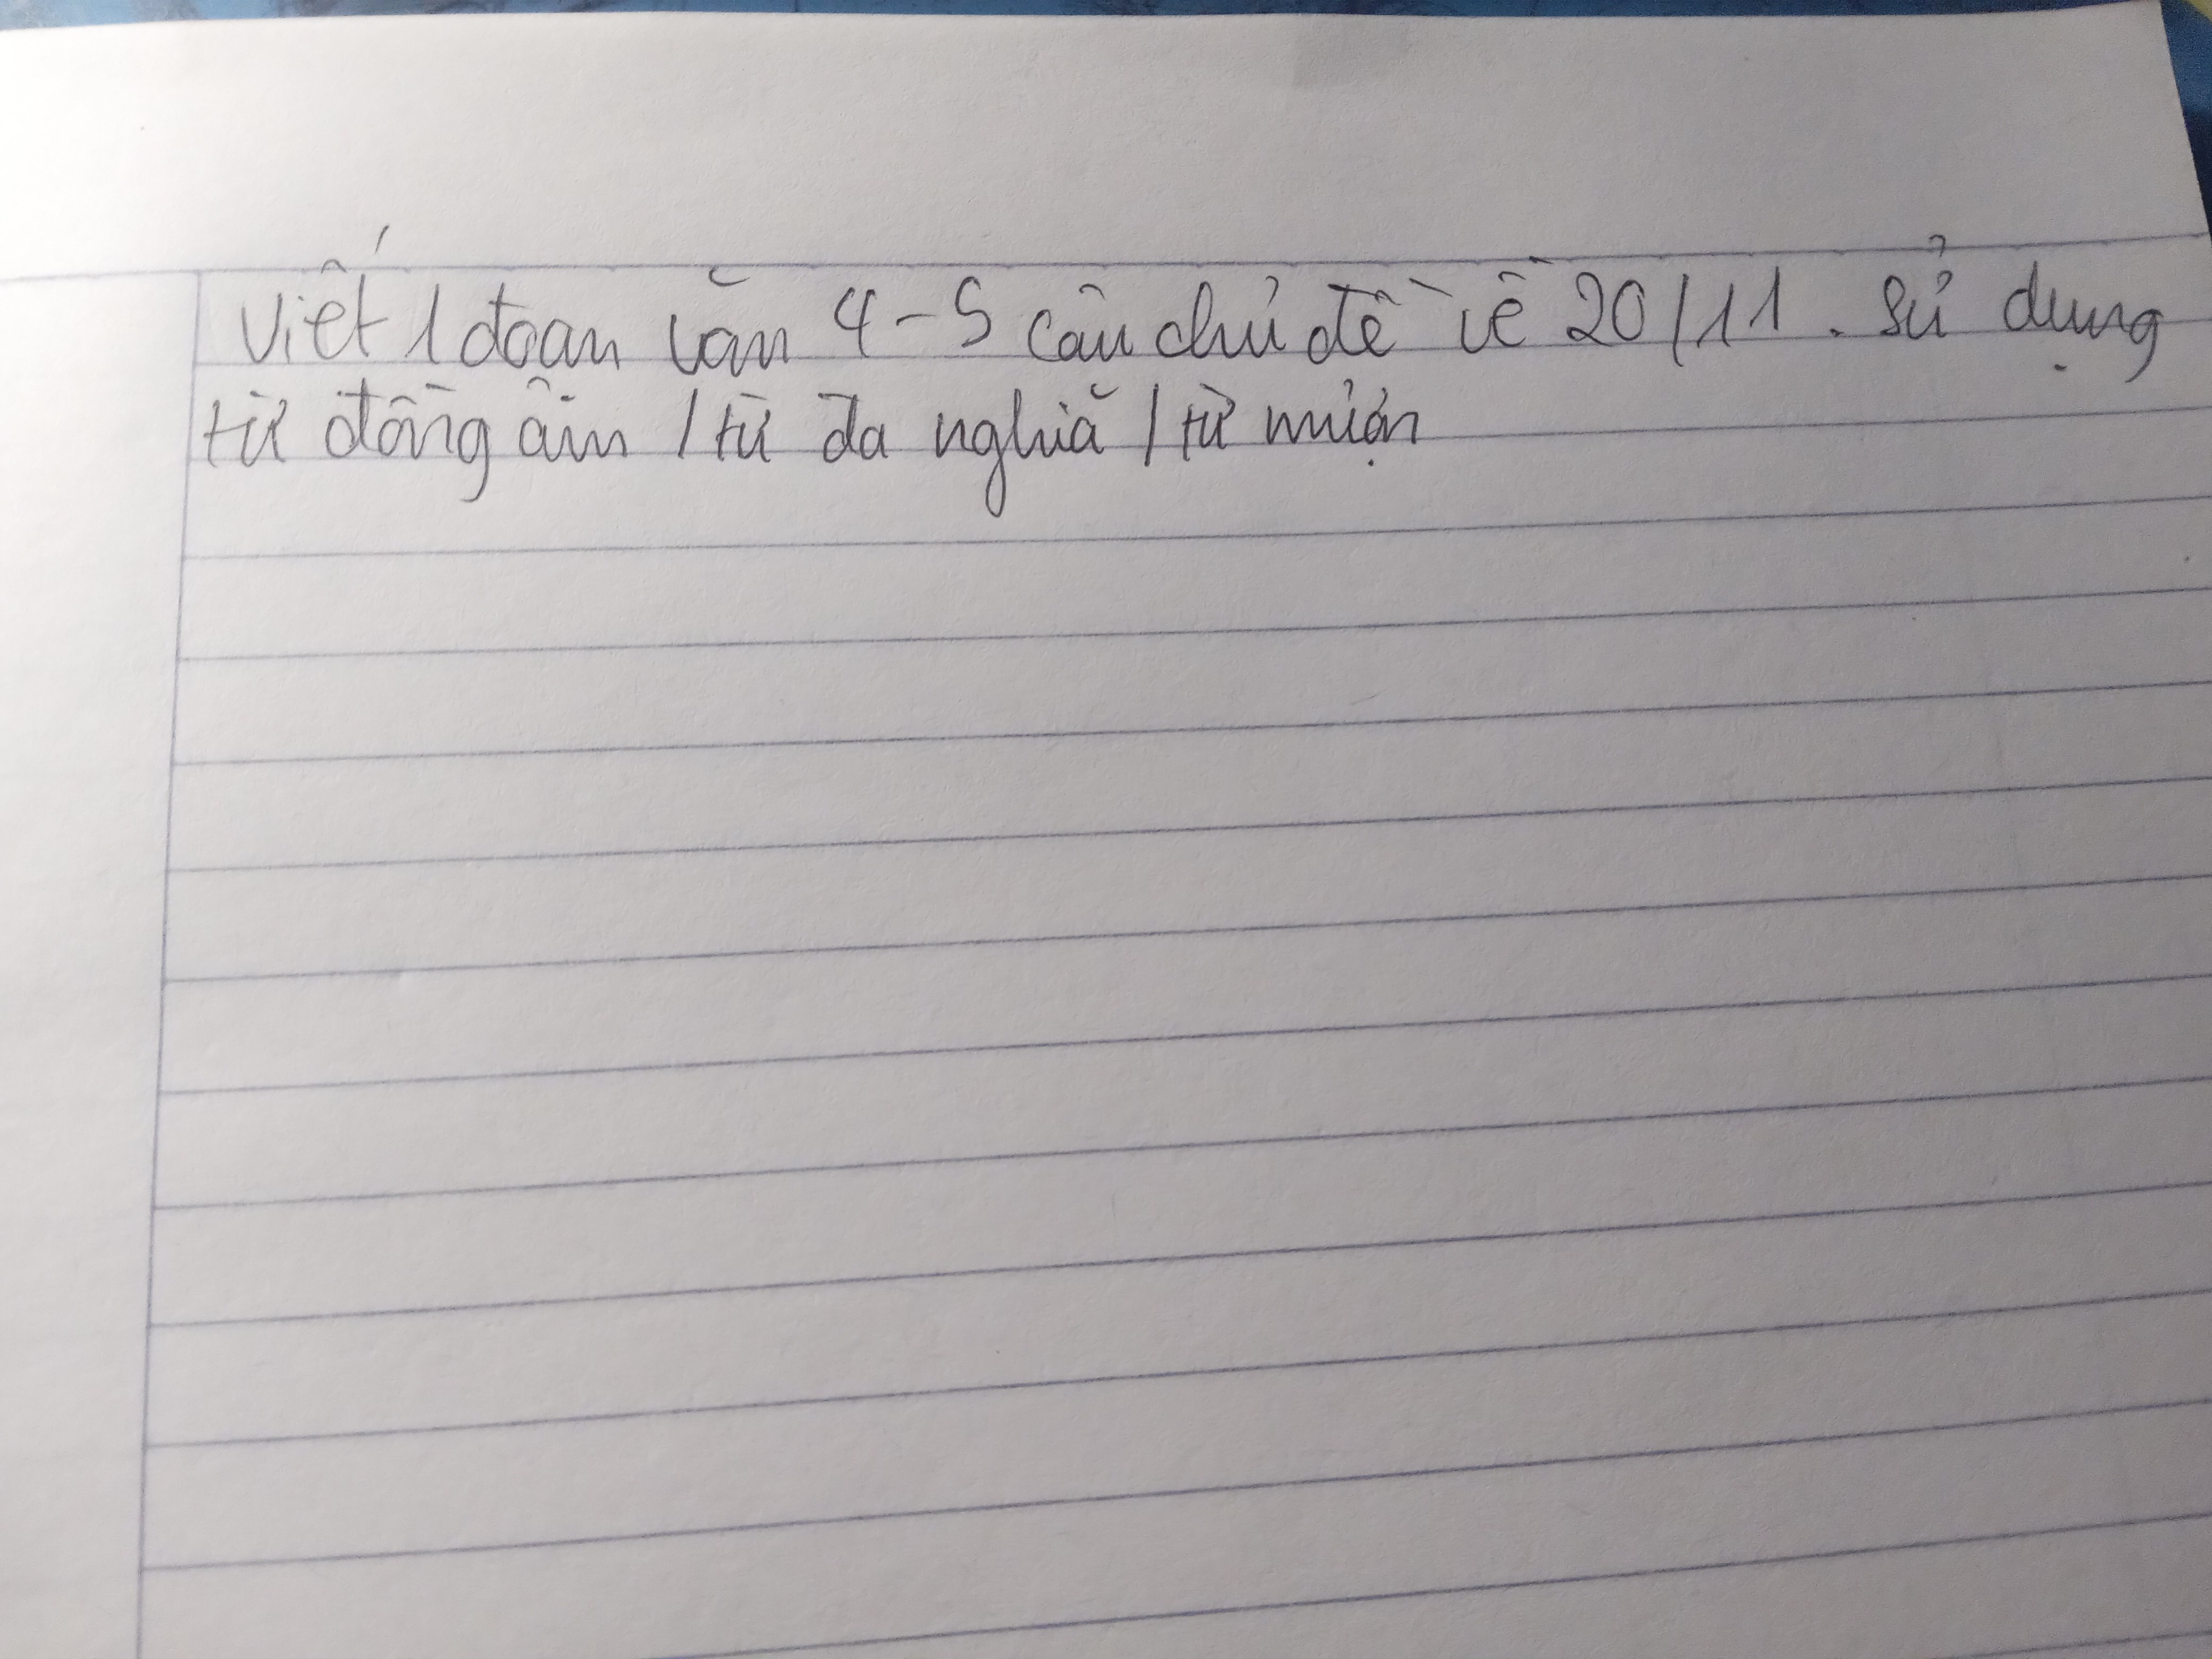 Viết 1 đoan văn 4-5 câu chủ đề về 20/11. Sử dụng
từ đồng âm / từ đa nghiã / từ mượn